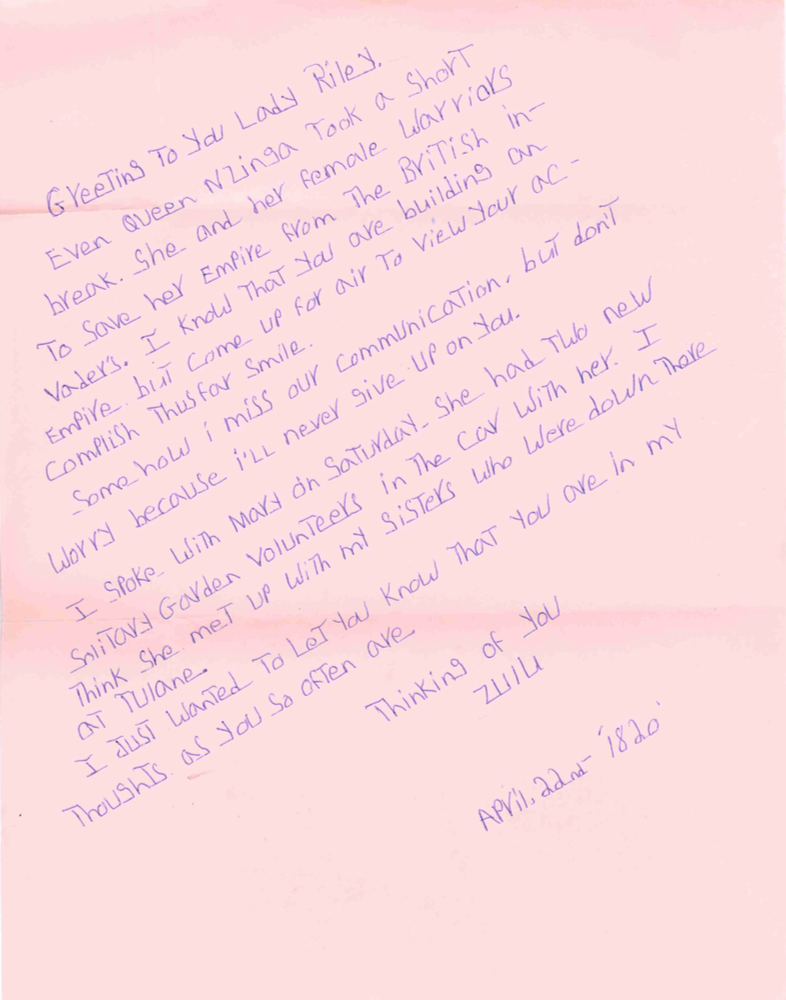 Greeting To You Lady Riley.
Even Queen Nzinga Took a short
break. She and her female Warriors
To Save her Empire from The British in-
vaders. I Know That You are building an
Empire but come up for air To view Your ac-
complish Thusfar Smile.
Some how i miss our communication, but don't
Worry because i'll never give up on You.
I Spoke With Mary on Saturday. She had Two new
Solitary Garden Volunteers in The Car With her. I
Think She met up With my Sisters who Were down There
at Tulane.
I Just Wanted To Let You Know That You are in my
Thoughts as You So often are
Thinking of You
Zulu
April, 22nd '1820'